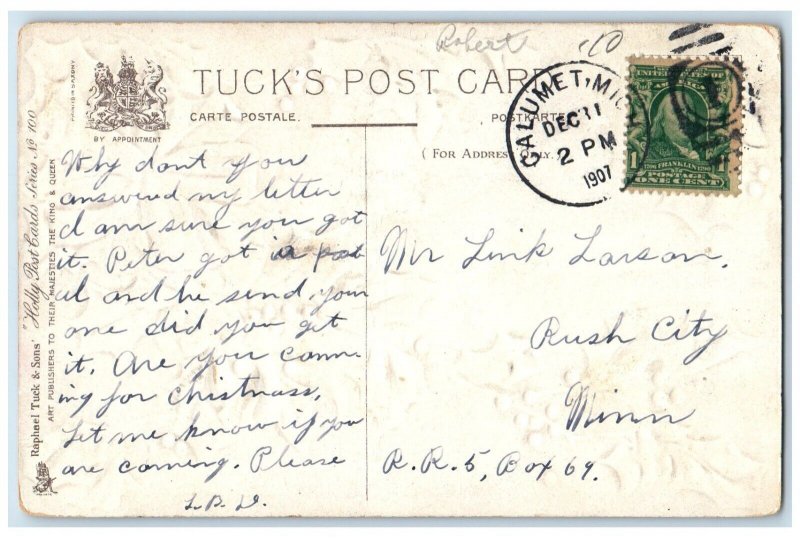 Robert
TUCK'S POST CARD
CARTE POSTALE.
POSTKARTE
BY APPOINTMENT
(FOR ADDRESS ONLY.)
PRINTED IN SAXONY
Raphael Tuck & Sons' "Holly Post Cards Series No 100
ART PUBLISHERS TO THEIR MAJESTIES THE KING & QUEEN
CALUMET, MICH.
DEC 11
2 PM
1907
UNITED STATES OF
AMERICA
1706 FRANKLIN 1790
POSTAGE
1 ONE CENT 1
Why dont you
answered my letter
I am sure you got
it. Peter got a post
al and he send your
one did you get
it. Are you comm-
ing for Christmass,
Let me know if you
are comming. Please
L. B. D.
Mr Link Larson,
Rush City
Minn
R.R. 5, Box 69.